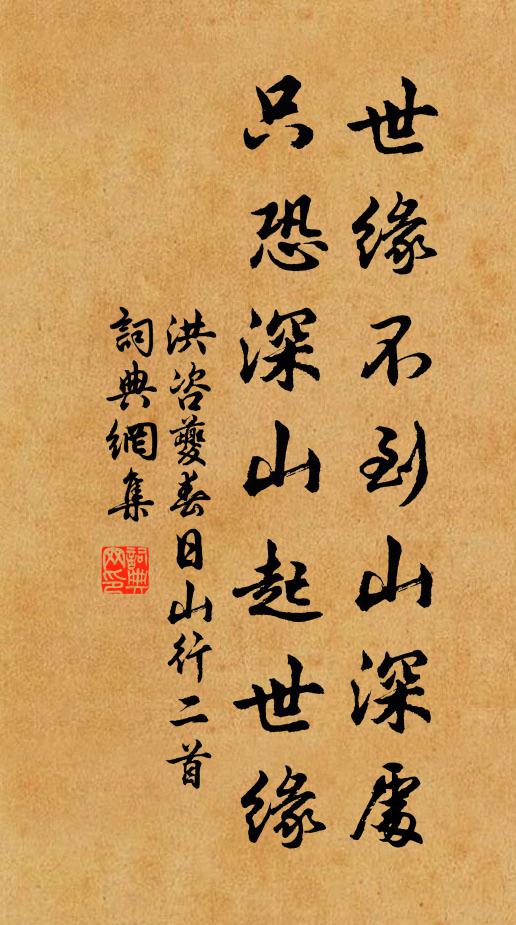 世緣不到山深處
只恐深山起世緣
洪咨夔春日山行二首
詞典網集
詞典網印